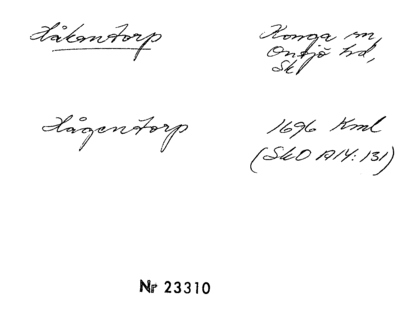 Håkentorp
Konga sn,
Onsjö hd,
Sk
Hågentorp
1696 Kml
(SkO A14:131)
Nr 23310